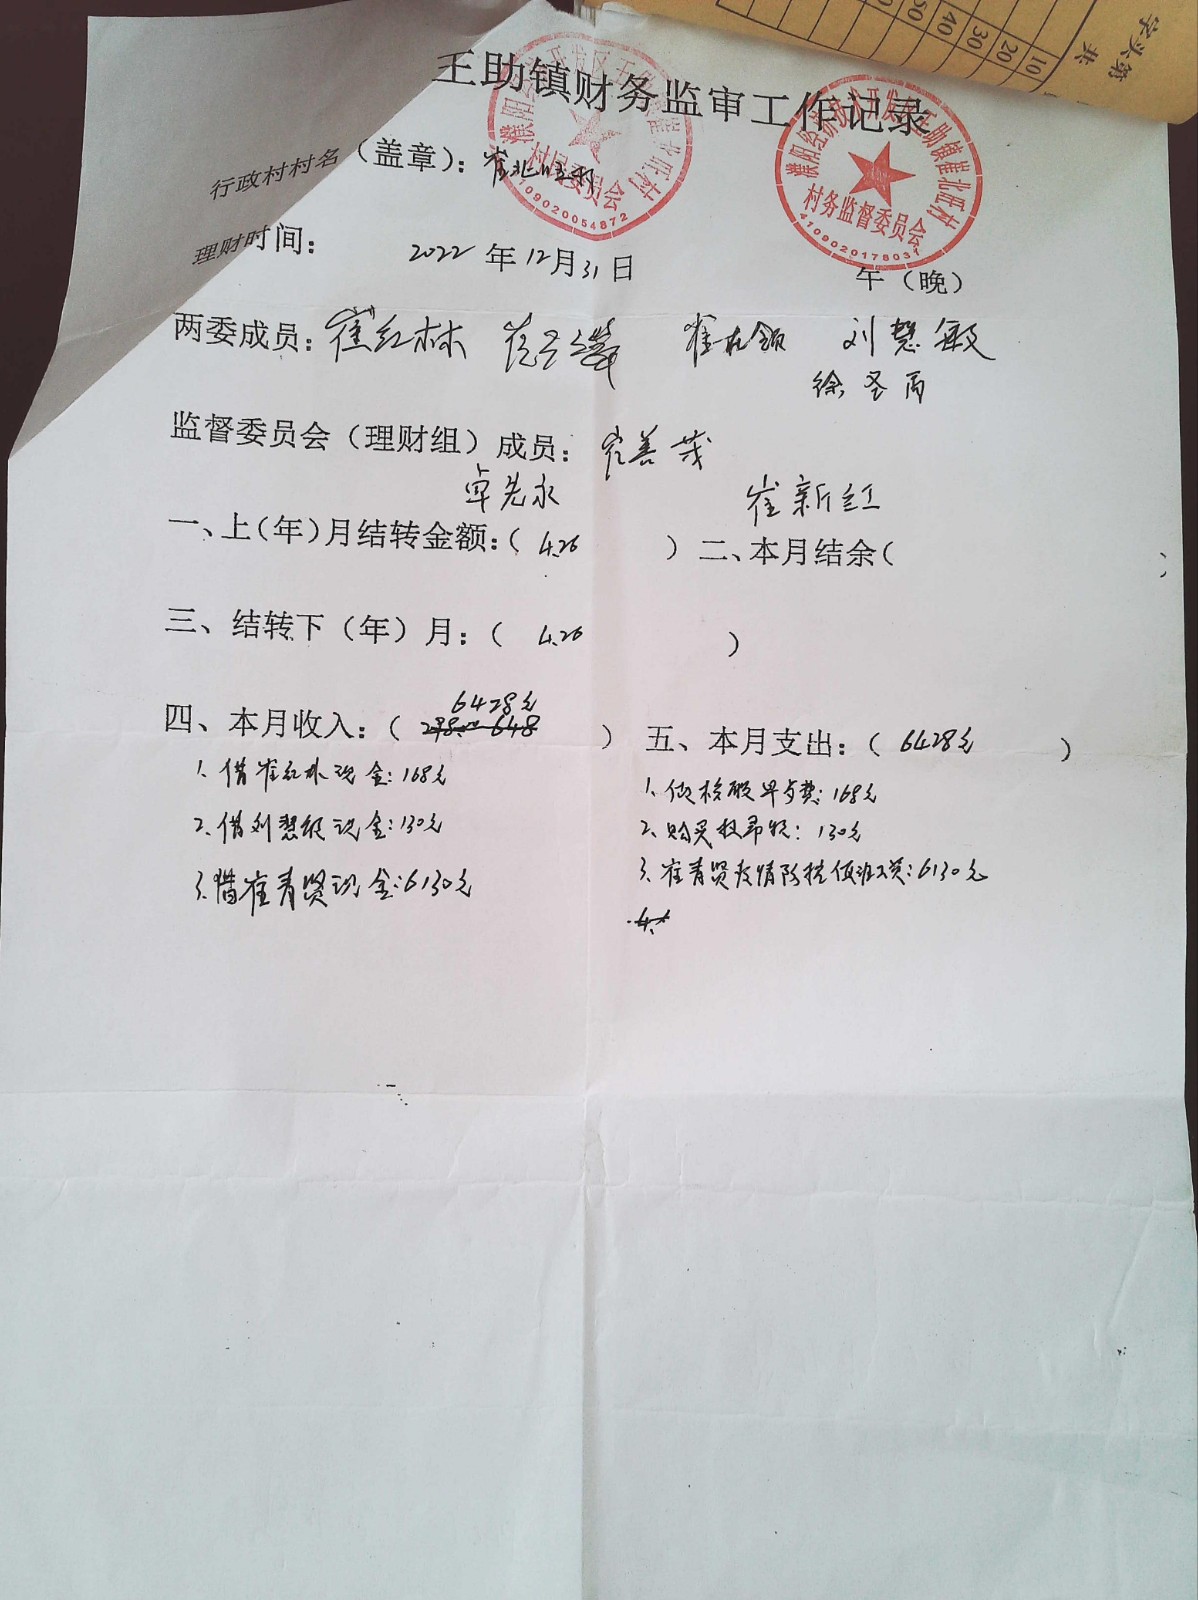 字头第
共
10
20
30
40
50
王助镇财务监审工作记录
行政村村名(盖章):崔北旺村
村民委员会
4109020054872
濮阳经济技术开发区王助镇崔北旺村
村务监督委员会
4109020178031
理财时间: 2022年12月31日 午(晚)
两委成员:崔红林 刘慧敏
徐圣丙
监督委员会(理财组)成员:崔善茂
卓先永 崔新红
一、上(年)月结转金额:( 4.26 ) 二、本月结余(
三、结转下(年)月:( 4.26 )
6428元
四、本月收入:( 298.00 648 ) 五、本月支出:( 6428元 )
1. 借崔红林现金:168元
1. 做核酸早歺费:168元
2. 借刘慧敏现金:130元
2. 购买:130元
3. 借崔青贤现金:6130元
3. 崔青贤疫情防控值班工资:6130元
4.